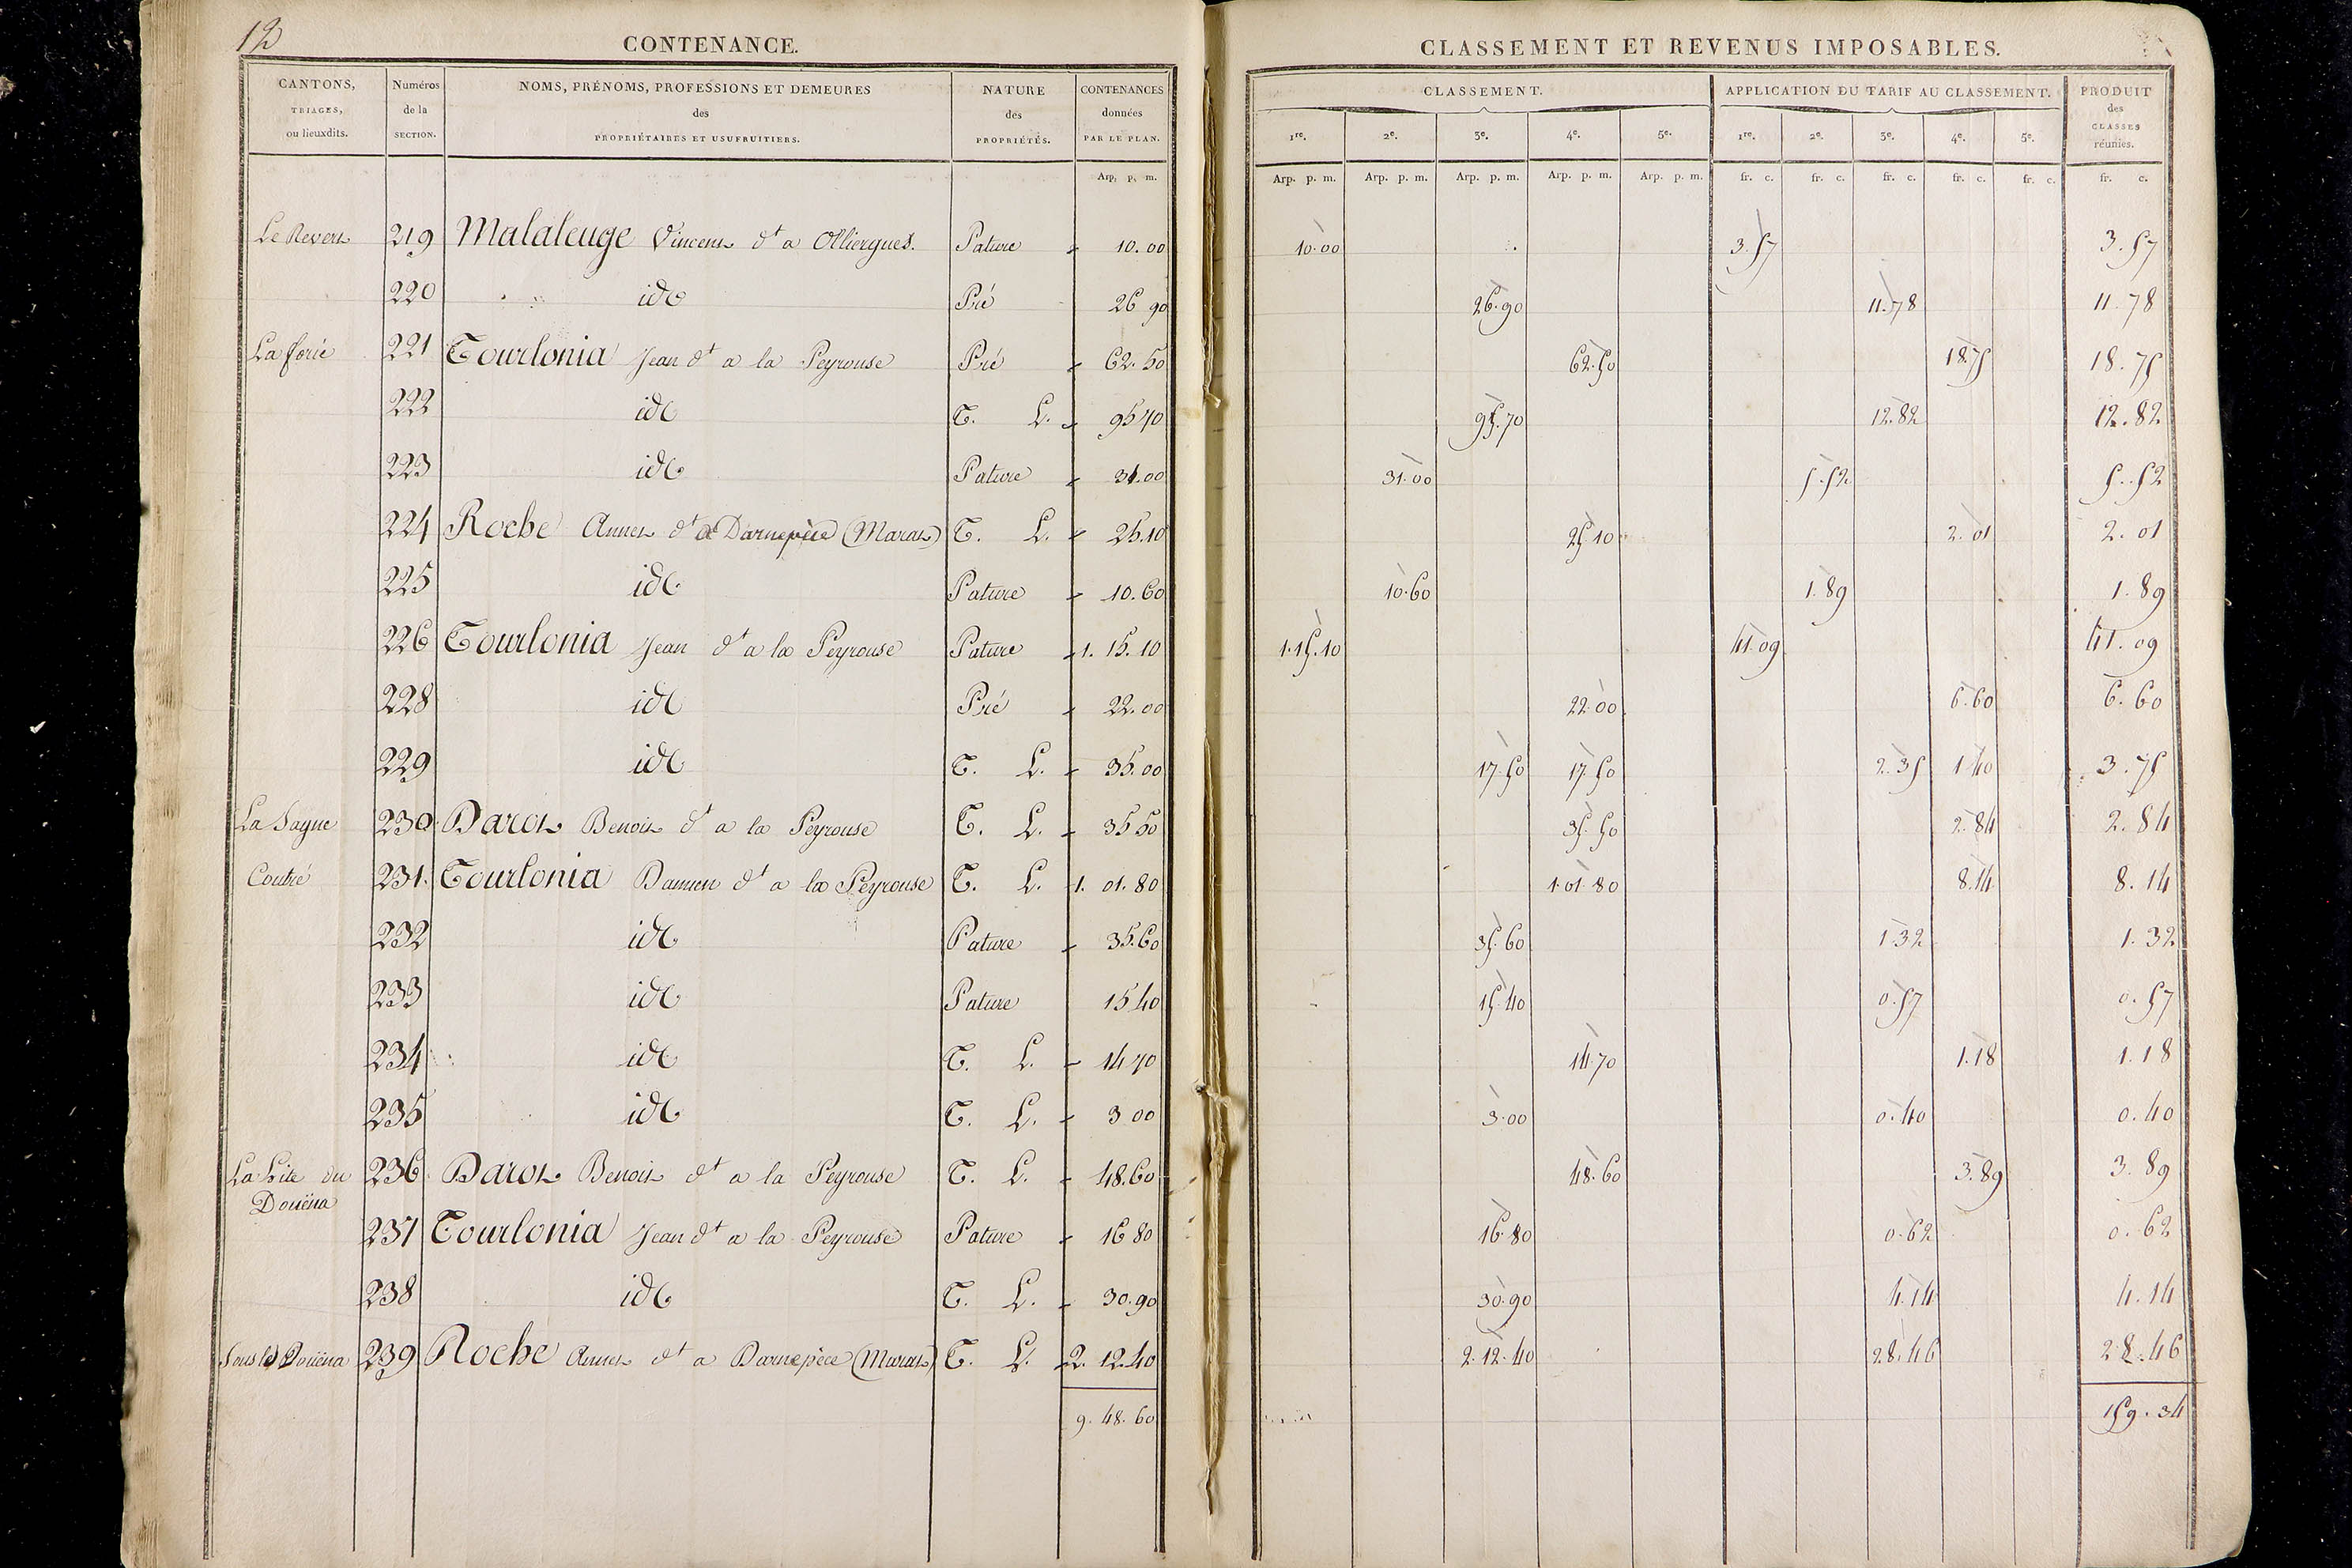 12
CONTENANCE.
CANTONS, TRIAGES, ou lieuxdits. | Numéros de la SECTION. | NOMS, PRÉNOMS, PROFESSIONS ET DEMEURES des PROPRIÉTAIRES ET USUFRUITIERS. | NATURE des PROPRIÉTÉS. | CONTENANCES données PAR LE PLAN.
Arp. p. m.
Le Revers 219 Malaleuge Vincent dt a Olliergues. Pature 10.00
220 id Pré 26 90
La forie 221 Tourlonia Jean dt a la Peyrouse Pré 62.50
222 id T. L. 95 70
223 id Pature 31.00
224 Roche Annet dt a Darnepèce (Marat) T. L. 25.10
225 id Pature 10.60
226 Tourlonia Jean dt a la Peyrouse Pature 1. 15. 10
228 id Pré 22.00
229 id T. L. 35.00
La Sagne 230 Darot Benoit dt a la Peyrouse T. L. 35 50
Coutré 231. Tourlonia Damien dt a la Peyrouse T. L. 1. 01. 80
232 id Pature 35.60
233 id Pature 15 40
234 id T. L. 14 70
235 id T. L. 3 00
La Lite du 236. Darot Benoit dt a la Peyrouse T. L. 48.60
Douëna
237 Tourlonia Jean dt a la Peyrouse Pature 16 80
238 id T. L. 30.90
Sous le Douëna 239 Roche Annet dt a Darnepèce (Marat) T. L. 2. 12.40
9. 48. 60
CLASSEMENT ET REVENUS IMPOSABLES.
CLASSEMENT. | APPLICATION DU TARIF AU CLASSEMENT. | PRODUIT des CLASSES réunies.
1re. 2e. 3e. 4e. 5e. 1re. 2e. 3e. 4e. 5e.
Arp. p. m. Arp. p. m. Arp. p. m. Arp. p. m. Arp. p. m. fr. c. fr. c. fr. c. fr. c. fr. c. fr. c.
10.00 3.57 3.57
26.90 11.78 11.78
62.50 18.75 18.75
95.70 12.82 12.82
31.00 5.52 5.52
25 10 2.01 2.01
10.60 1.89 1.89
1.15.10 41.09 41.09
22.00 6.60 6.60
17.50 17.50 2.35 1.40 3.75
35.50 2.84 2.84
1.01.80 8.14 8.14
35.60 1.32 1.32
15.40 0.57 0.57
14.70 1.18 1.18
3.00 0.40 0.40
48.60 3.89 3.89
16.80 0.62 0.62
30.90 4.14 4.14
2.12.40 28.46 28.46
159.34